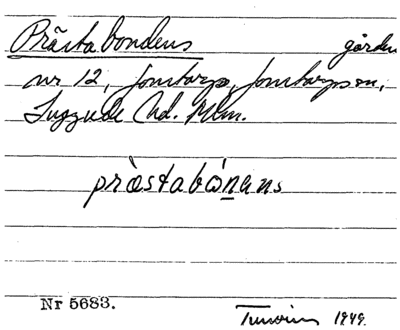 Prästabondens gården
nr 12, Jonstorps, Jonstorps sn,
Luggude hd. Mlm.
præstabónans
Nr 5683.
1949.